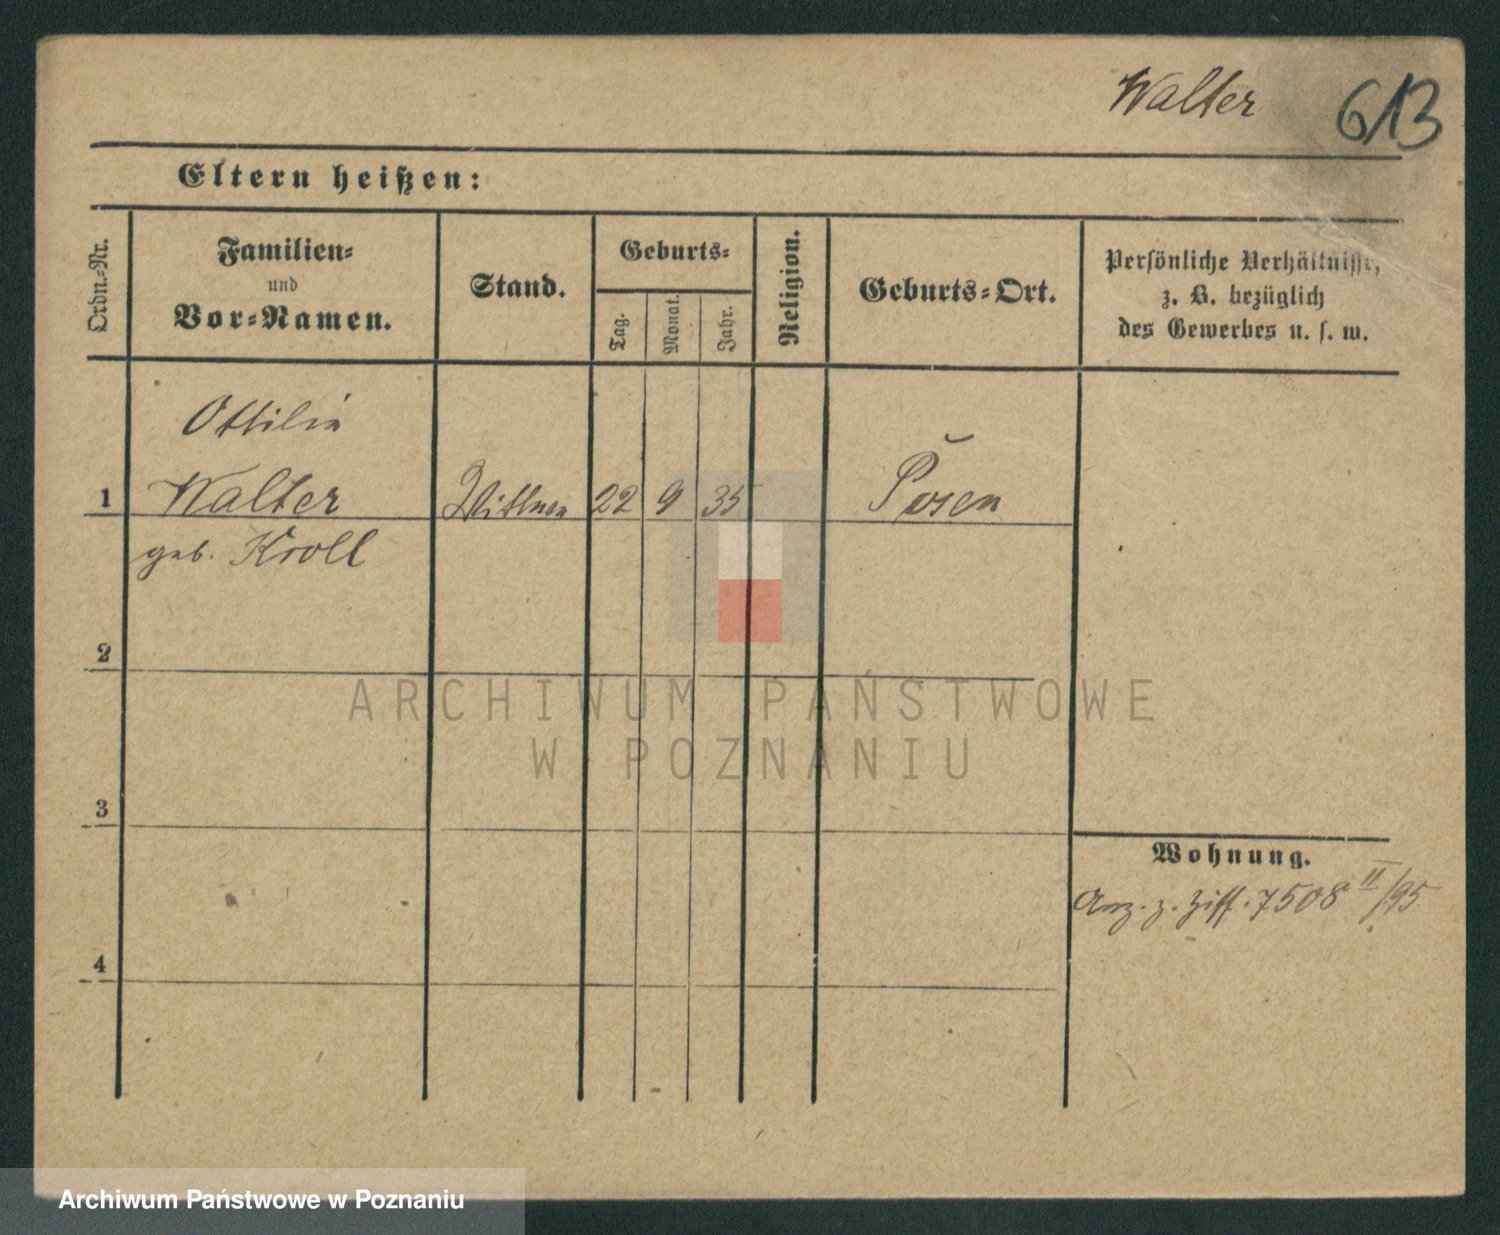 Walter 613
Eltern heißen:
Ordn.-Nr.
Familien-
und
Vor-Namen.
Stand.
Geburts-
Tag.
Monat.
Jahr.
Religion.
Geburts-Ort.
Persönliche Verhältnisse,
z. B. bezüglich
des Gewerbes u. s. w.
Ottilie
1 Walter 22 9 35 Posen
geb. Kroll
2
3
4
Wohnung.
Anz. z. Ziff. 7508 II/95
ARCHIWUM PAŃSTWOWE
W POZNANIU
Archiwum Państwowe w Poznaniu